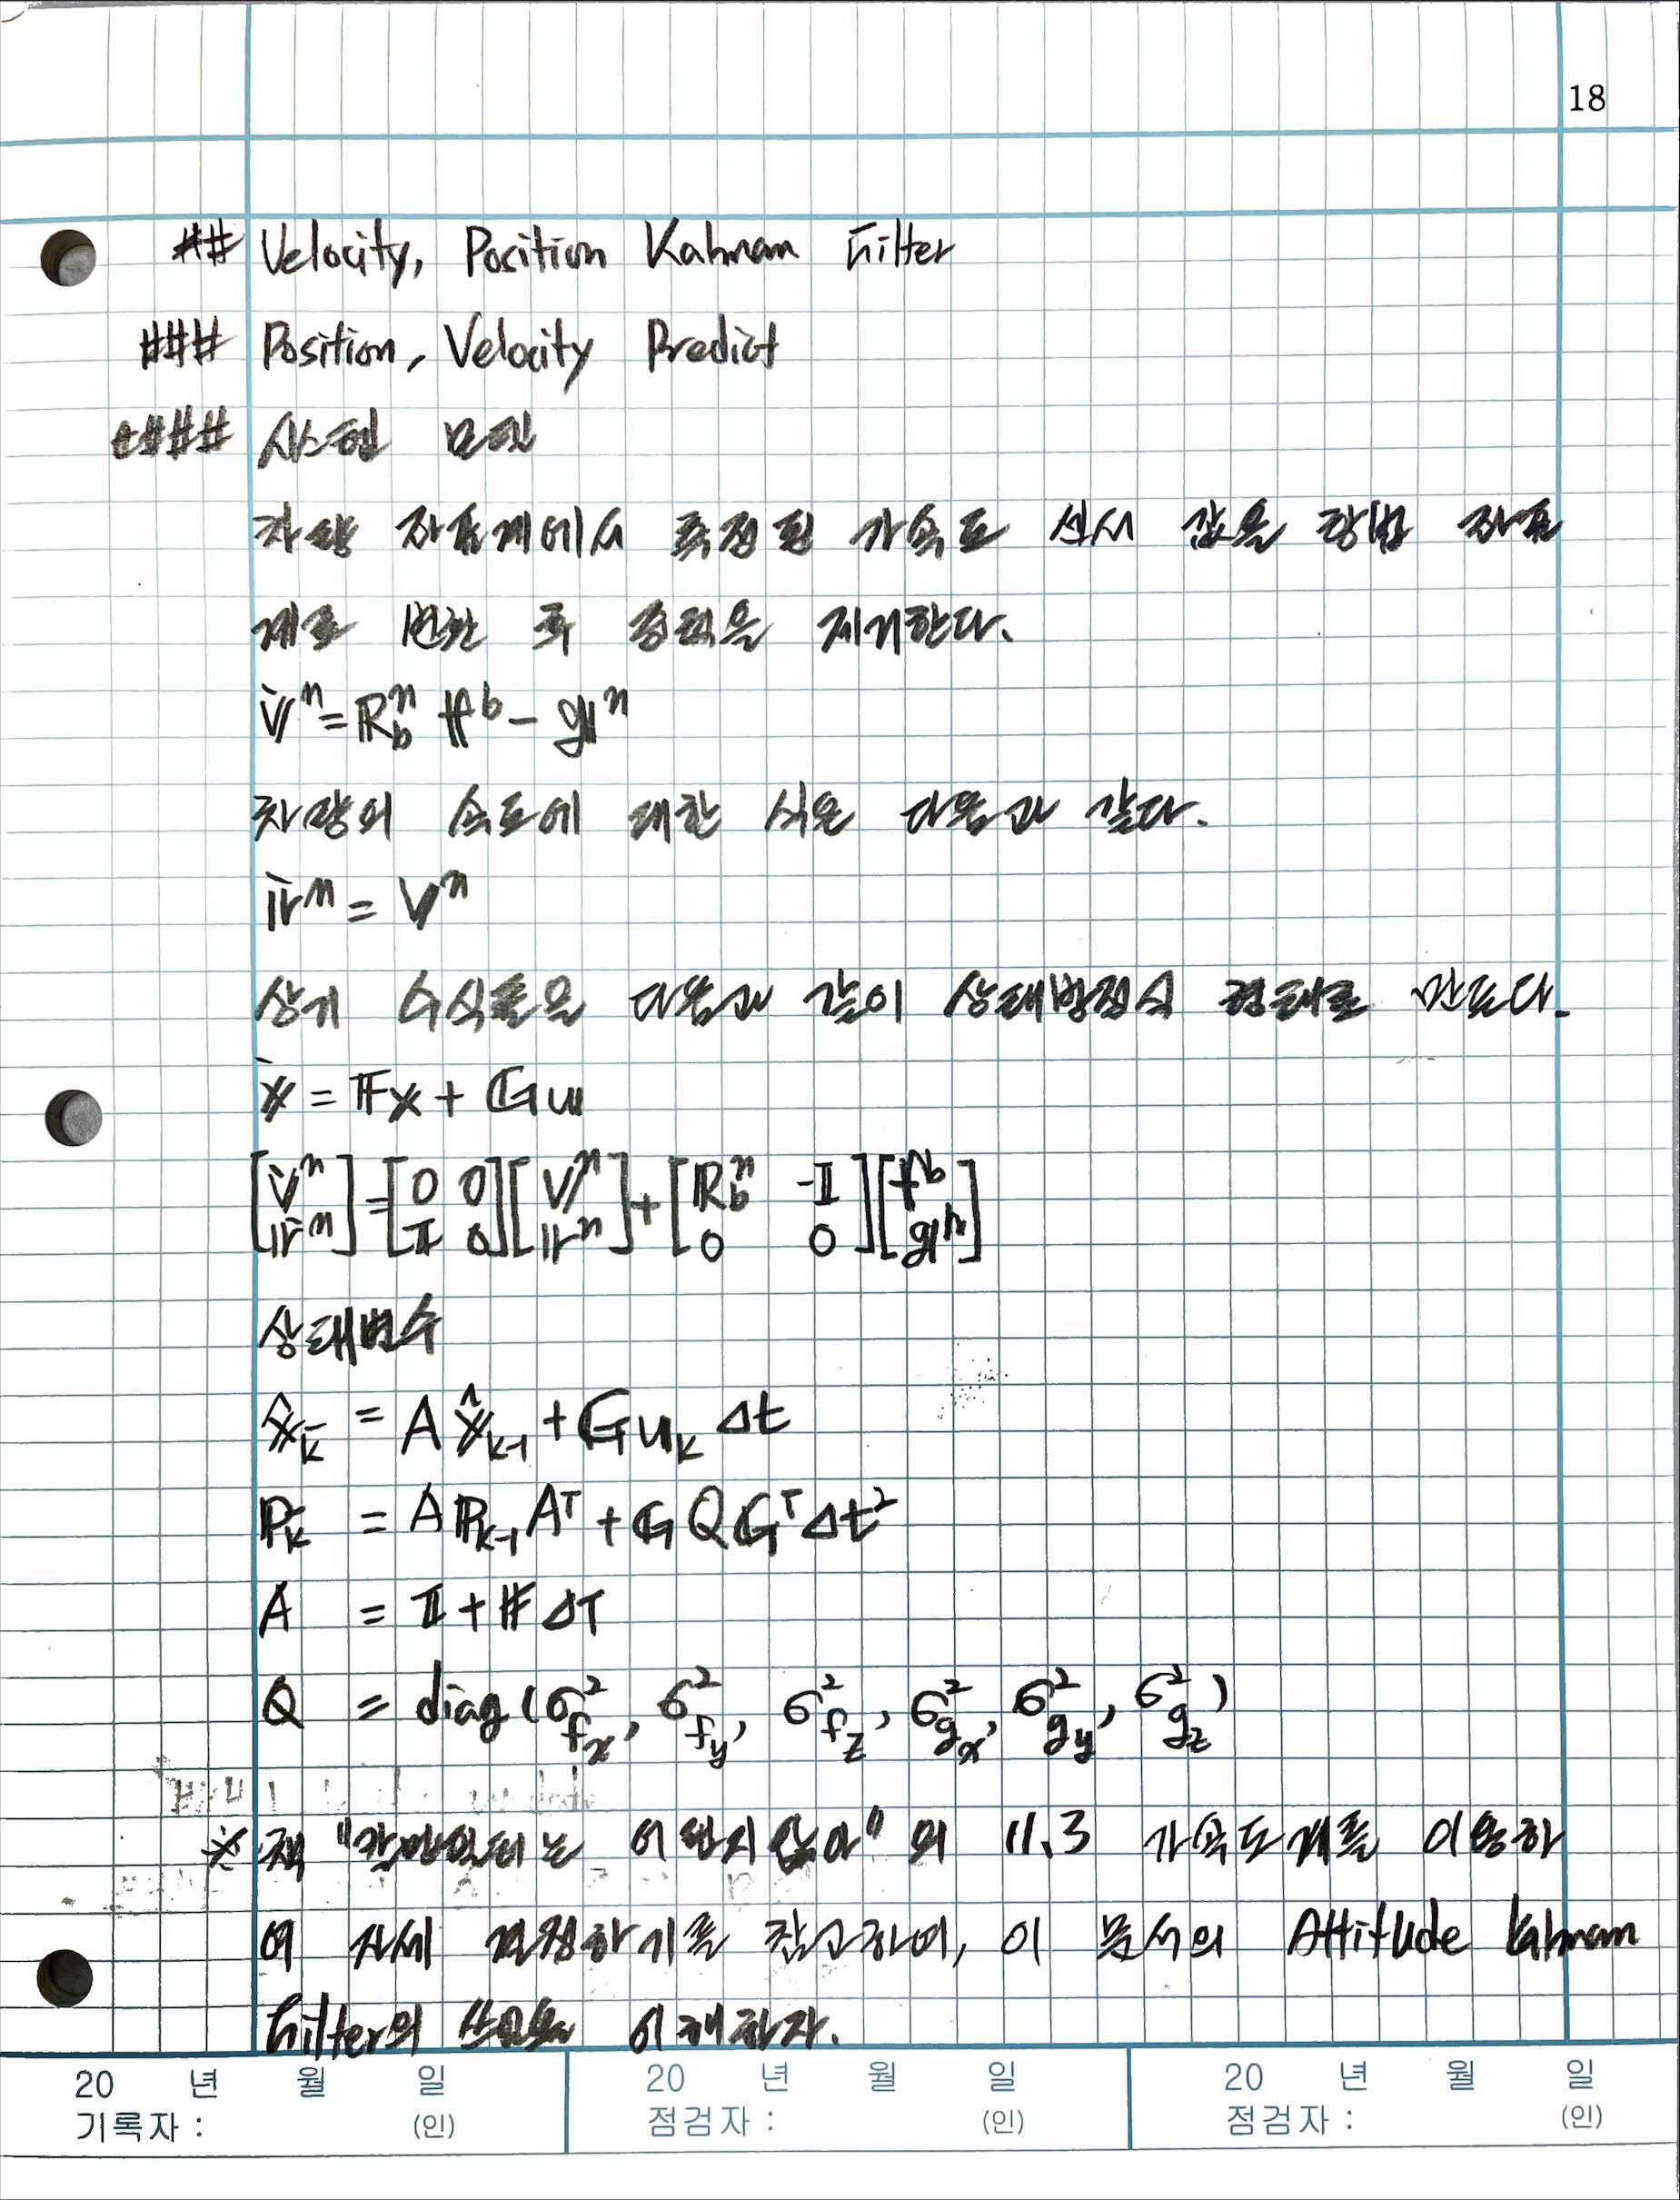 18
## Velocity, Position Kalman Filter
### Position, Velocity Predict
#### 시스템 모델
차량 좌표계에서 측정된 가속도 센서 값을 항법 좌표
계로 변환 후 중력을 제거한다.
v̇ⁿ = R_b^n f^b - gⁿ
차량의 속도에 대한 식은 다음과 같다.
ṙⁿ = vⁿ
상기 수식들을 다음과 같이 상태방정식 형태로 만든다.
ẋ = Fx + Gu
[v̇ⁿ; ṙⁿ] = [0 0; I 0][vⁿ; rⁿ] + [R_b^n -I; 0 0][f^b; gⁿ]
상태변수
x̂_k^- = A x̂_{k-1} + G u_k Δt
P_k^- = A P_{k-1} A^T + G Q G^T Δt²
A = I + F ΔT
Q = diag(σ²_{f_x}, σ²_{f_y}, σ²_{f_z}, σ²_{g_x}, σ²_{g_y}, σ²_{g_z})
※ 책 "칼만필터는 어렵지않아"의 11.3 가속도계를 이용하
여 자세 결정하기를 참고하여, 이 문서의 Attitude Kalman
Filter의 쓰임을 이해하자.
20 년 월 일 20 년 월 일 20 년 월 일
기록자 : (인) 점검자 : (인) 점검자 : (인)